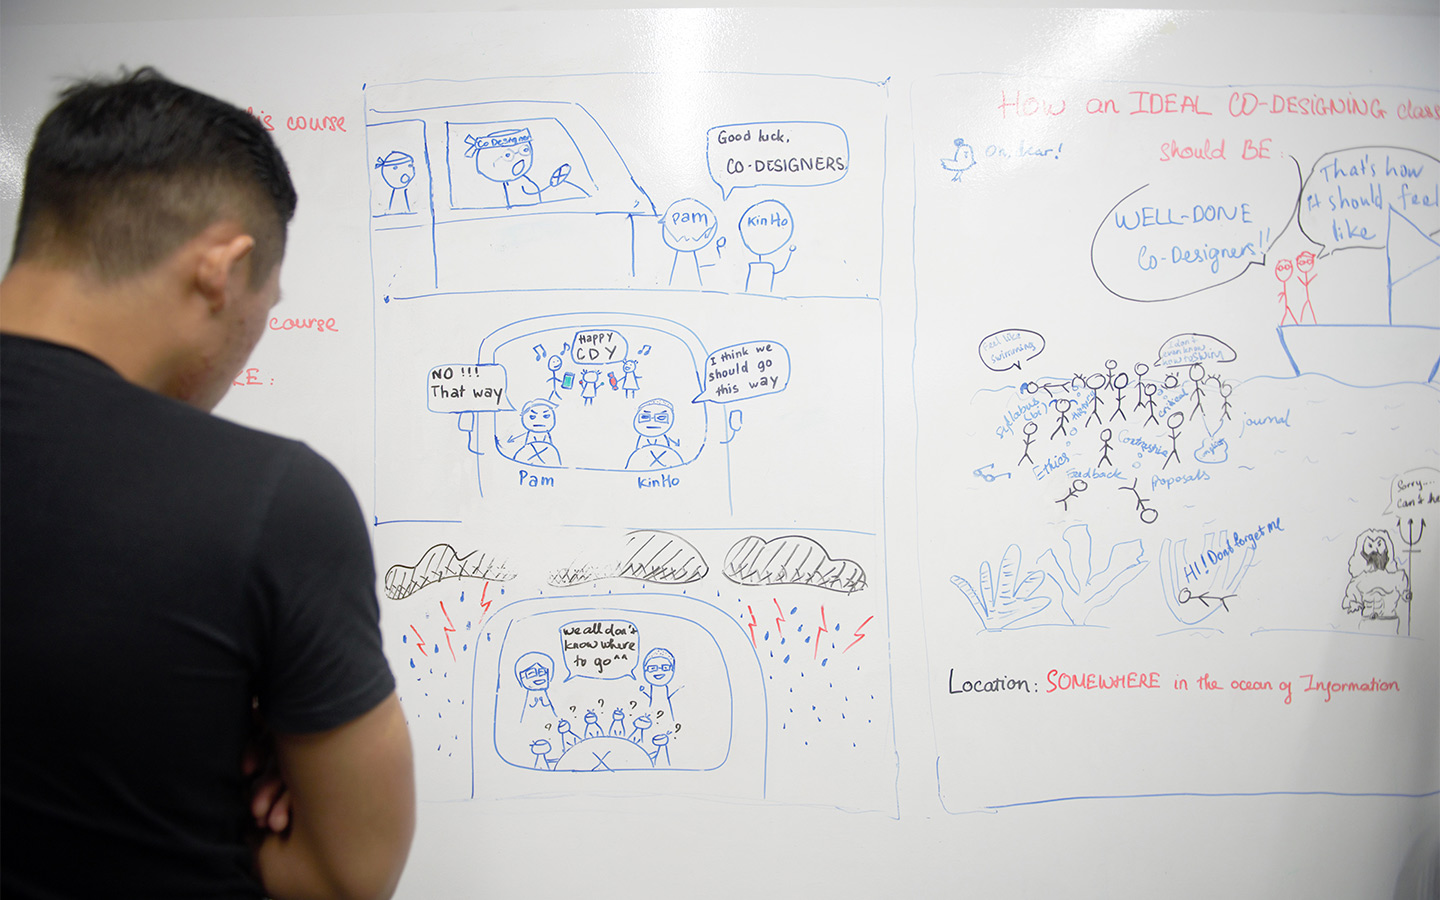 his course
course
RE:
Co Designer
Good luck,
CO-DESIGNERS
Pam
KinHo
Happy
CDY
NO !!!
That way
I think we
should go
this way
Pam
KinHo
we all don't
know where
to go^^
? ? ? ? ? ?
How an IDEAL CO-DESIGNING class
should BE:
Oh, dear!
WELL-DONE
Co-Designers!!
That's how
it should feel
like
Feel like
swimming
I don't
even know
how to
Syllabus
critical
journal
Ethics
Feedback
Proposals
HI! Dont forget me
Sorry....
can't he
Location: SOMEWHERE in the ocean of Information